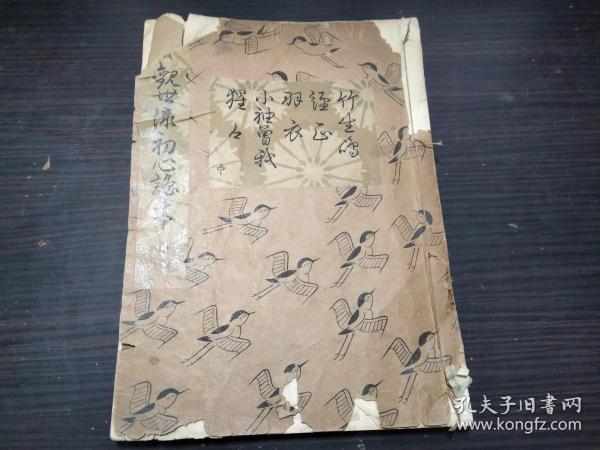 竹生嶋
經正
羽衣
小袖曽我
猩々
中
觀世流初心謠本
孔夫子旧書网
www.kongfz.com